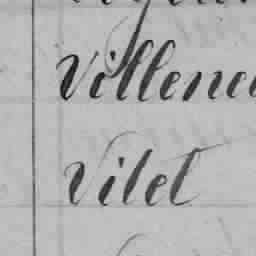 Villene
Vilet